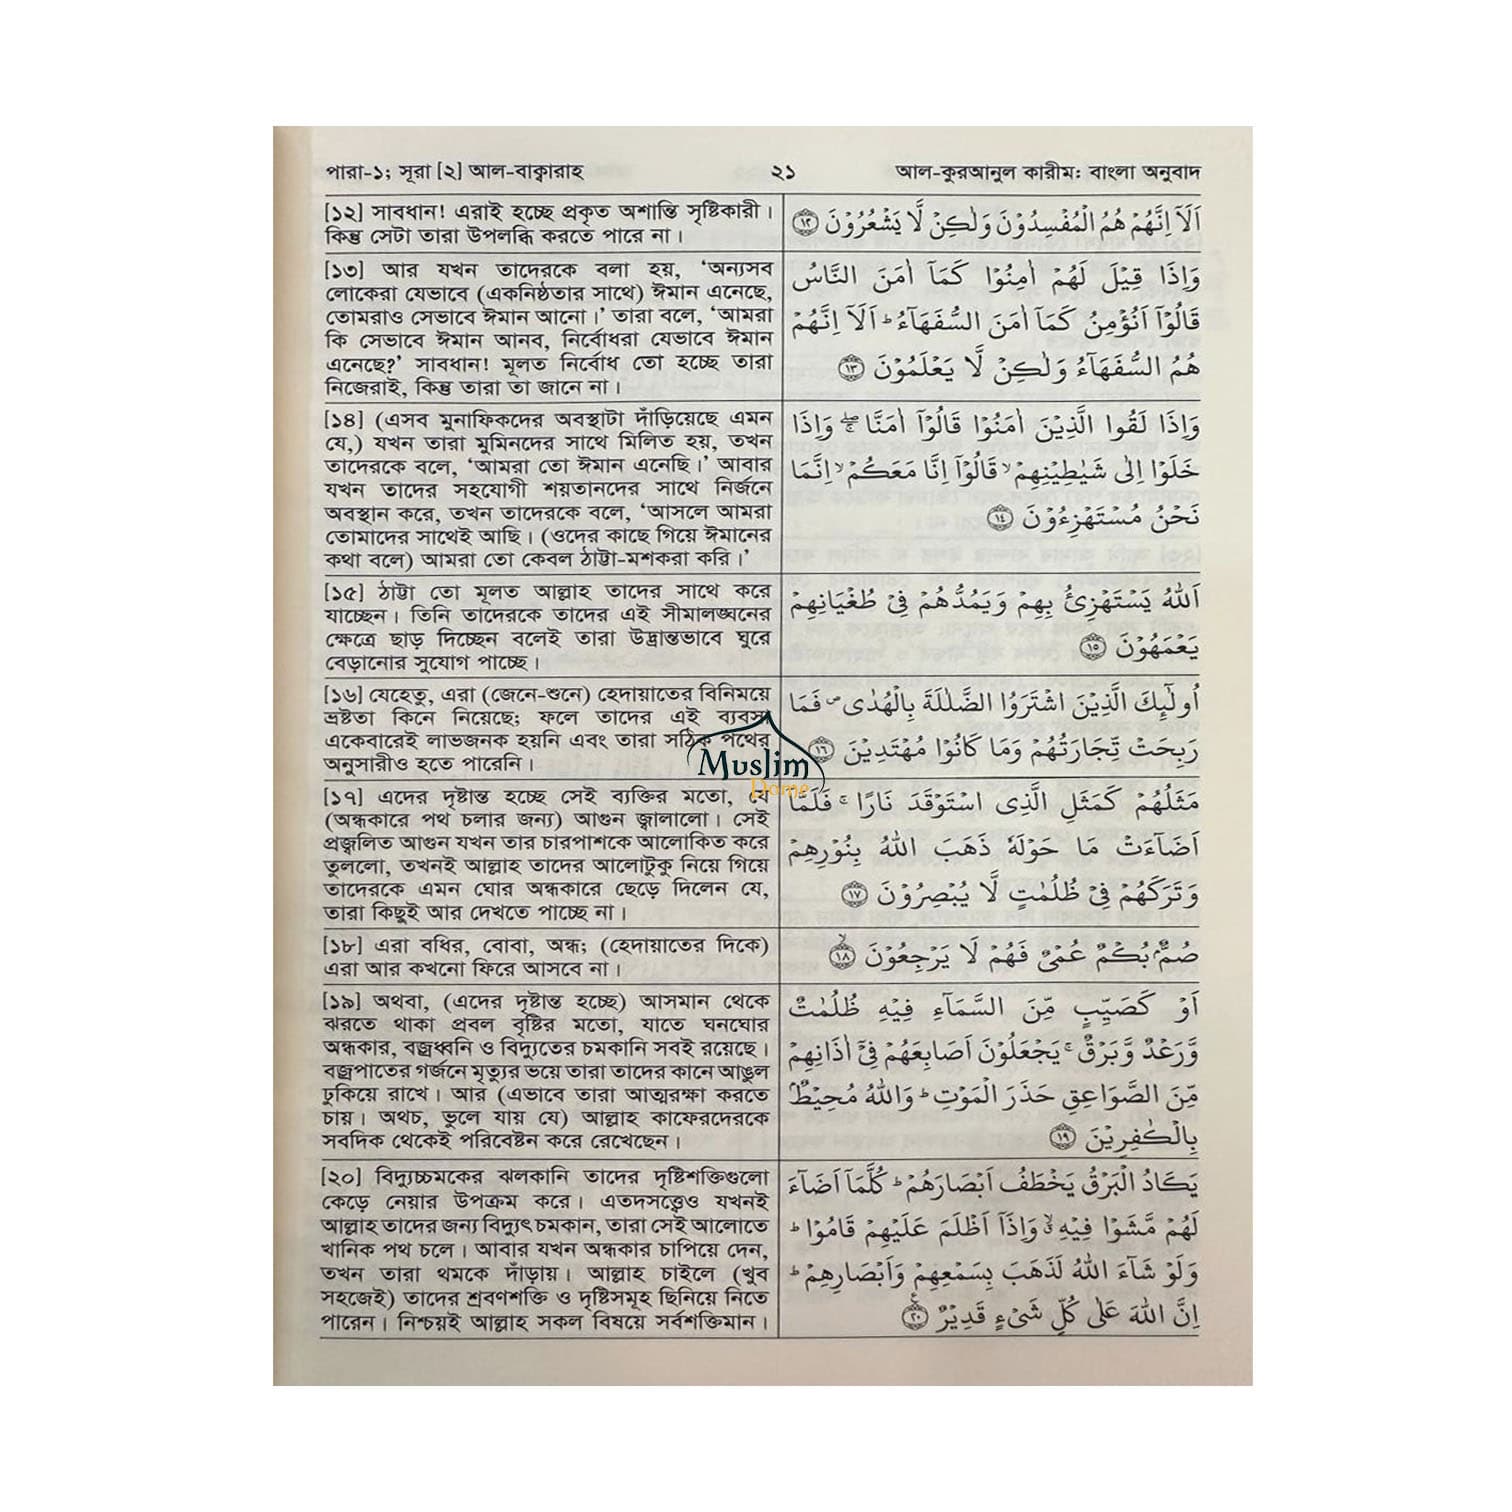 পারা-১; সূরা [২] আল-বাক্বারাহ
২১
আল-কুরআনুল কারীম: বাংলা অনুবাদ
[১২] সাবধান! এরাই হচ্ছে প্রকৃত অশান্তি সৃষ্টিকারী।
কিন্তু সেটা তারা উপলব্ধি করতে পারে না।
اَلَاۤ اِنَّهُمۡ هُمُ الۡمُفۡسِدُوۡنَ وَلٰكِنۡ لَّا يَشۡعُرُوۡنَ ﴿۱۲﴾
[১৩] আর যখন তাদেরকে বলা হয়, ‘অন্যসব
লোকেরা যেভাবে (একনিষ্ঠতার সাথে) ঈমান এনেছে,
তোমরাও সেভাবে ঈমান আনো।’ তারা বলে, ‘আমরা
কি সেভাবে ঈমান আনব, নির্বোধরা যেভাবে ঈমান
এনেছে?’ সাবধান! মূলত নির্বোধ তো হচ্ছে তারা
নিজেরাই, কিন্তু তারা তা জানে না।
وَاِذَا قِيۡلَ لَهُمۡ اٰمِنُوۡا كَمَاۤ اٰمَنَ النَّاسُ
قَالُوۡاۤ اَنُؤۡمِنُ كَمَاۤ اٰمَنَ السُّفَهَآءُ ؕ اَلَاۤ اِنَّهُمۡ
هُمُ السُّفَهَآءُ وَلٰكِنۡ لَّا يَعۡلَمُوۡنَ ﴿۱۳﴾
[১৪] (এসব মুনাফিকদের অবস্থাটা দাঁড়িয়েছে এমন
যে,) যখন তারা মুমিনদের সাথে মিলিত হয়, তখন
তাদেরকে বলে, ‘আমরা তো ঈমান এনেছি।’ আবার
যখন তাদের সহযোগী শয়তানদের সাথে নির্জনে
অবস্থান করে, তখন তাদেরকে বলে, ‘আসলে আমরা
তোমাদের সাথেই আছি। (ওদের কাছে গিয়ে ঈমানের
কথা বলে) আমরা তো কেবল ঠাট্টা-মশকরা করি।’
وَاِذَا لَقُوا الَّذِيۡنَ اٰمَنُوۡا قَالُوۡاۤ اٰمَنَّا ۚۖ وَاِذَا
خَلَوۡا اِلٰى شَيٰطِيۡنِهِمۡ ۙ قَالُوۡاۤ اِنَّا مَعَكُمۡ ۙ اِنَّمَا
نَحۡنُ مُسۡتَهۡزِءُوۡنَ ﴿۱۴﴾
[১৫] ঠাট্টা তো মূলত আল্লাহ তাদের সাথে করে
যাচ্ছেন। তিনি তাদেরকে তাদের এই সীমালঙ্ঘনের
ক্ষেত্রে ছাড় দিচ্ছেন বলেই তারা উদ্ভ্রান্তভাবে ঘুরে
বেড়ানোর সুযোগ পাচ্ছে।
اَللّٰهُ يَسۡتَهۡزِئُ بِهِمۡ وَيَمُدُّهُمۡ فِىۡ طُغۡيَانِهِمۡ
يَعۡمَهُوۡنَ ﴿۱۵﴾
[১৬] যেহেতু, এরা (জেনে-শুনে) হেদায়াতের বিনিময়ে
ভ্রষ্টতা কিনে নিয়েছে; ফলে তাদের এই ব্যবসা
একেবারেই লাভজনক হয়নি এবং তারা সঠিক পথের
অনুসারীও হতে পারেনি।
اُولٰٓٮِٕكَ الَّذِيۡنَ اشۡتَرَوُا الضَّلٰلَةَ بِالۡهُدٰى ۪ فَمَا
رَبِحَتۡ تِّجَارَتُهُمۡ وَمَا كَانُوۡا مُهۡتَدِيۡنَ ﴿۱۶﴾
Muslim
Dome
[১৭] এদের দৃষ্টান্ত হচ্ছে সেই ব্যক্তির মতো, যে
(অন্ধকারে পথ চলার জন্য) আগুন জ্বালালো। সেই
প্রজ্বলিত আগুন যখন তার চারপাশকে আলোকিত করে
তুললো, তখনই আল্লাহ তাদের আলোটুকু নিয়ে গিয়ে
তাদেরকে এমন ঘোর অন্ধকারে ছেড়ে দিলেন যে,
তারা কিছুই আর দেখতে পাচ্ছে না।
مَثَلُهُمۡ كَمَثَلِ الَّذِى اسۡتَوۡقَدَ نَارًا ۚ فَلَمَّاۤ
اَضَآءَتۡ مَا حَوۡلَهٗ ذَهَبَ اللّٰهُ بِنُوۡرِهِمۡ
وَتَرَكَهُمۡ فِىۡ ظُلُمٰتٍ لَّا يُبۡصِرُوۡنَ ﴿۱۷﴾
[১৮] এরা বধির, বোবা, অন্ধ; (হেদায়াতের দিকে)
এরা আর কখনো ফিরে আসবে না।
صُمٌّۢ بُكۡمٌ عُمۡىٌ فَهُمۡ لَا يَرۡجِعُوۡنَ ۙ﴿۱۸﴾
[১৯] অথবা, (এদের দৃষ্টান্ত হচ্ছে) আসমান থেকে
ঝরতে থাকা প্রবল বৃষ্টির মতো, যাতে ঘনঘোর
অন্ধকার, বজ্রধ্বনি ও বিদ্যুতের চমকানি সবই রয়েছে।
বজ্রপাতের গর্জনে মৃত্যুর ভয়ে তারা তাদের কানে আঙুল
ঢুকিয়ে রাখে। আর (এভাবে তারা আত্মরক্ষা করতে
চায়। অথচ, ভুলে যায় যে) আল্লাহ কাফেরদেরকে
সবদিক থেকেই পরিবেষ্টন করে রেখেছেন।
اَوۡ كَصَيِّبٍ مِّنَ السَّمَآءِ فِيۡهِ ظُلُمٰتٌ
وَّرَعۡدٌ وَّبَرۡقٌ ۚ يَجۡعَلُوۡنَ اَصَابِعَهُمۡ فِىۡۤ اٰذَانِهِمۡ
مِّنَ الصَّوَاعِقِ حَذَرَ الۡمَوۡتِ ؕ وَاللّٰهُ مُحِيۡطٌۢ
بِالۡكٰفِرِيۡنَ ﴿۱۹﴾
[২০] বিদ্যুচ্চমকের ঝলকানি তাদের দৃষ্টিশক্তিগুলো
কেড়ে নেয়ার উপক্রম করে। এতদসত্ত্বেও যখনই
আল্লাহ তাদের জন্য বিদ্যুৎ চমকান, তারা সেই আলোতে
খানিক পথ চলে। আবার যখন অন্ধকার চাপিয়ে দেন,
তখন তারা থমকে দাঁড়ায়। আল্লাহ চাইলে (খুব
সহজেই) তাদের শ্রবণশক্তি ও দৃষ্টিসমূহ ছিনিয়ে নিতে
পারেন। নিশ্চয়ই আল্লাহ সকল বিষয়ে সর্বশক্তিমান।
يَكَادُ الۡبَرۡقُ يَخۡطَفُ اَبۡصَارَهُمۡ ؕ كُلَّمَاۤ اَضَآءَ
لَهُمۡ مَّشَوۡا فِيۡهِ ۙ وَاِذَاۤ اَظۡلَمَ عَلَيۡهِمۡ قَامُوۡا ؕ
وَلَوۡ شَآءَ اللّٰهُ لَذَهَبَ بِسَمۡعِهِمۡ وَاَبۡصَارِهِمۡ ؕ
اِنَّ اللّٰهَ عَلٰى كُلِّ شَىۡءٍ قَدِيۡرٌ ﴿۲۰﴾